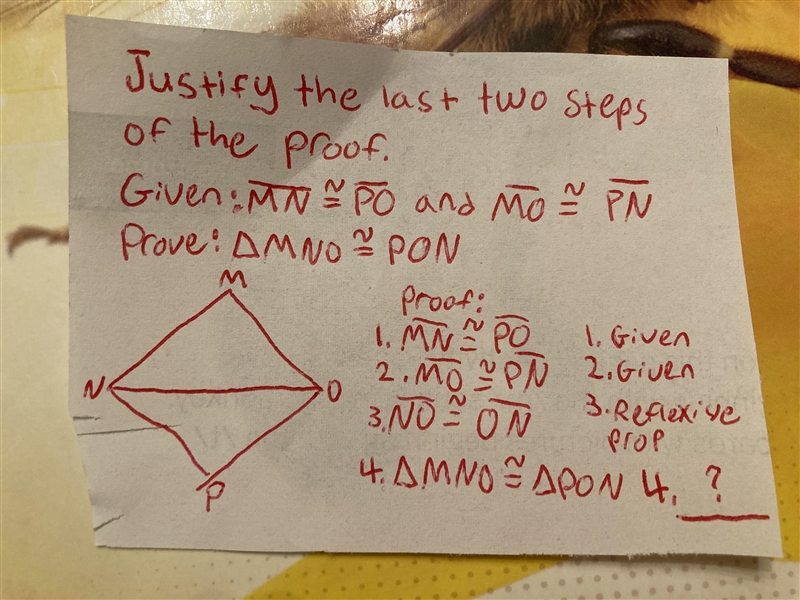 Justify the last two steps
of the proof.
Given: M̅N̅ ≅ P̅O̅ and M̅O̅ ≅ P̅N̅
Prove: ΔMNO ≅ PON
M
N
O
P
Proof:
1. M̅N̅ ≅ P̅O̅ 1. Given
2. M̅O̅ ≅ P̅N̅ 2. Given
3. N̅O̅ ≅ O̅N̅ 3. Reflexive
prop
4. ΔMNO ≅ ΔPON 4. ?